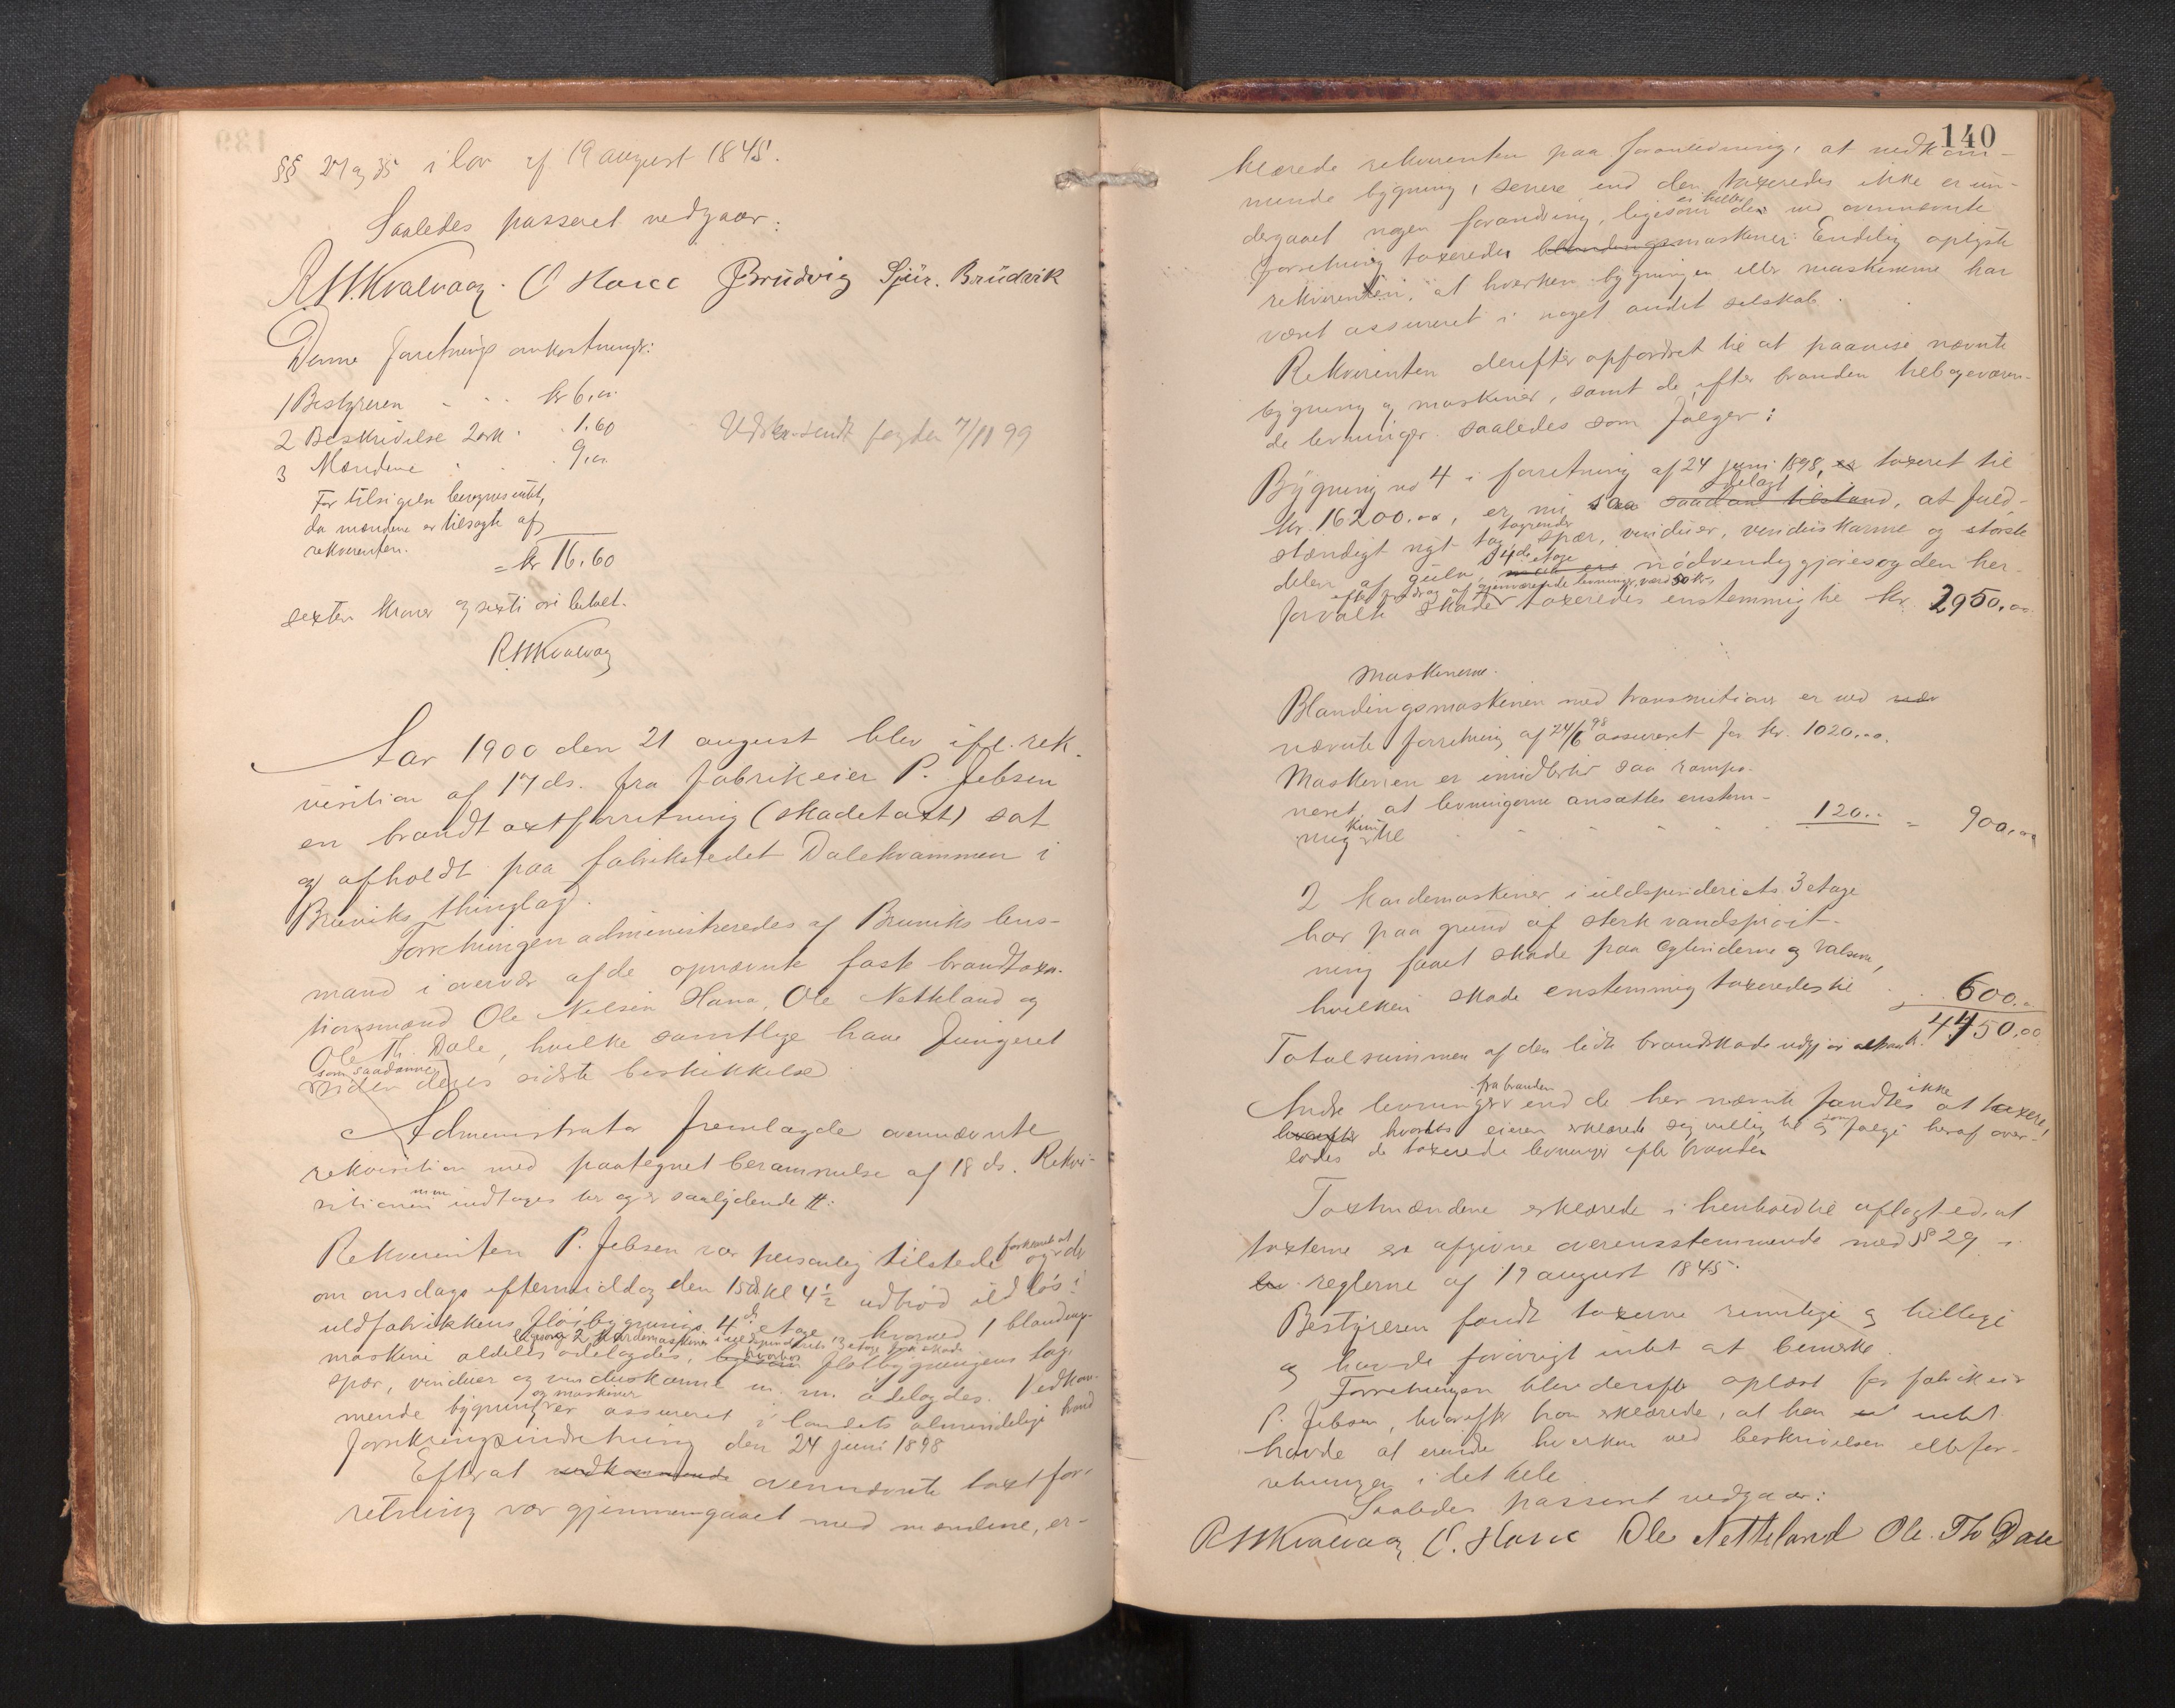 §§ 27 og 35 i lov af 19 august 1845.
Saaledes passeret vedgaar:
R.H.Kvalvaag. O Hane J Brüdvig Sjür. Brüdvik
Denne forretnings omkostninger:
1 Bestyreren - - - kr 6,00
2 Beskrivelse 2 ark - . 1.60
3 Mændene . . 9,00
For tilsigelsen beregnes intet,
da mændene er tilsagte af
rekvirenten.
= kr 16.60
sexten kroner og sexti øre betalt.
R.H.Kvalvaag
Udskr. sendt fogden 7/11 99
Aar 1900 den 21 august blev ifl. rek-
visition af 17 ds. fra fabrikeier P. Jebsen
en brandtaxtforretning (skadetaxt) sat
og afholdt paa fabrikstedet Dalekvammen i
Bruviks thinglag.
Forretningen administreredes af Bruviks lens-
mand i overvær af de opnævnte faste brandtaxa-
tionsmænd Ole Nilsen Hana, Ole Netteland og
Ole Th. Dale, hvilke samtlige have fungeret
som saadanne
siden deres sidste beskikkelse
Administrator fremlagde ovennævnte
rekvisition med paategnet berammelse af 18 ds. Rekvi-
sitionen indtages her og er saalydende #:
Rekvirenten P. Jebsen var personlig tilstede og
forklarede at der
om onsdags eftermiddag den 15 ds kl 4½ udbrød ild løs i
uldfabrikkens fløibygnings 4de etage, hvorved 1 blandings-
ligesom 2 kardemaskiner i uldspinderiets 3 etage fik skade
maskine aldeles ødelagdes, ligesom hvorhos fløibygningens tag,
spær, vinduer og vinduskarme m. m. ødelagdes. Vedkom-
og maskiner
mende bygning er assureret i landets almindelige brand
forsikringsindretning den 24 juni 1898
Efterat vedkommende ovennævnte taxtfor-
retning var gjennemgaaet med mændene, er-
140
klærede rekvirenten paa foranledning, at vedkom-
mende bygning, senere end den taxeredes ikke er un-
dergaaet nogen forandring, ligesom ei heller de ved ovennævnte
forretning taxerede blandingsmaskiner. Endelig oplyste
rekvirenten, at hverken bygningen eller maskinerne har
været assureret i noget andet selskab.
Rekvirenten derefter opfordret til at paavise nævnte
bygning og maskiner, samt de efter branden tilbageværen-
de levninger saaledes som følger:
Bygning no 4 i forretning af 24 juni 1898, er taxeret til
ødelagt
kr. 16200.00, er nu saa saadan tilstand, at fuld-
tagrender
stændigt nyt tag, spær, vinduer, vinduskarme og største
i 4de etage
delen af gulv, nødvendiggjøres og den her-
efter fradrag af gjenværende levninger værd 50 kr,
forvoldte skade taxeredes enstemmig til kr. 2950.00
Maskinerne.
Blandingsmaskinen med transmission er ved
nævnte forretning af 24/6 98 assureret for kr. 1020.00.
Maskinen er imidlertid saa rampo-
neret at levningerne ansættes enstem-
mig kun til - - - - - 120.00 = 900,00
2 kardemaskiner i uldspinderiets 3 etage
har paa grund af sterk vandsprøit-
ning faaet skade paa cylinderne og valserne,
hvilken skade enstemmig taxeredes til 600.00
Totalsummen af den lidte brandskade udgjør altsaa kr. 4450.00
Andre levninger fra branden end de her nævnte fandtes ikke at taxere,
hvorefter hvorhos eieren erklærede sig villig til og som følge heraf over-
lodes de taxerede levninger efter branden
Taxtmændene erklærede i henhold til aflagt ed, at
taxterne er afgivne overensstemmende med § 29 i
lov reglerne af 19 august 1845.
Bestyreren fandt taxterne rimelige og billige
og havde forøvrigt intet at bemerke.
Forretningen blev derefter oplæst for fabrikeier
P. Jebsen, hvorefter han erklærede, at han intet
havde at erindre hverken ved beskrivelsen eller for-
retningen i det hele
Saaledes passeret vedgaar:
R.H.Kvalvaag O. Hane Ole Netteland Ole. Th Dale